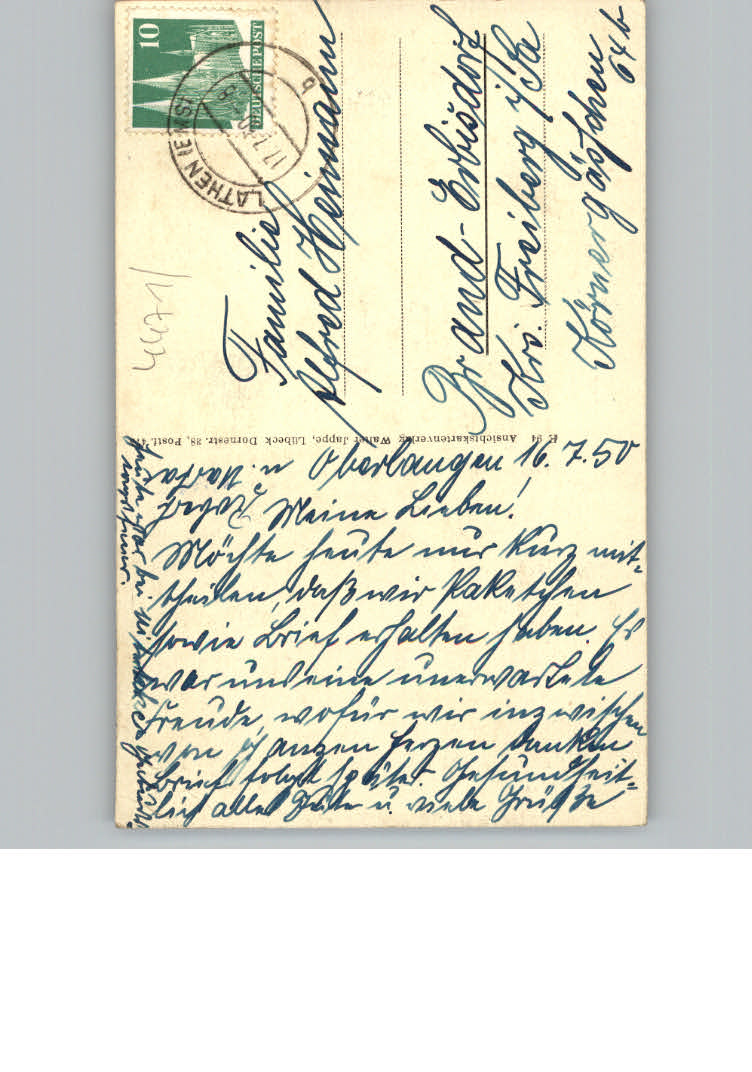 10
DEUTSCHE POST
LATHEN (EMS)
17.7.50
b
4471/
Familie
Alfred Heimann
Brand-Erbisdorf
Krs. Freiberg i/Sa
Körnergäßchen
64 b
K 94 Ansichtskartenverlag Walter Jappe, Lübeck Dornestr. 38, Postf.
Oberlangen 16.7.50
Meine Lieben!
Möchte heute nur kurz mit-
theilen, daß wir Paketchen
sowie Brief erhalten haben. Es
war uns eine unerwartete
Freude, wofür wir inzwischen
von ganzen Herzen danken
Brief folgt später. Gesundheit-
lich alles Gute u. viele Grüße